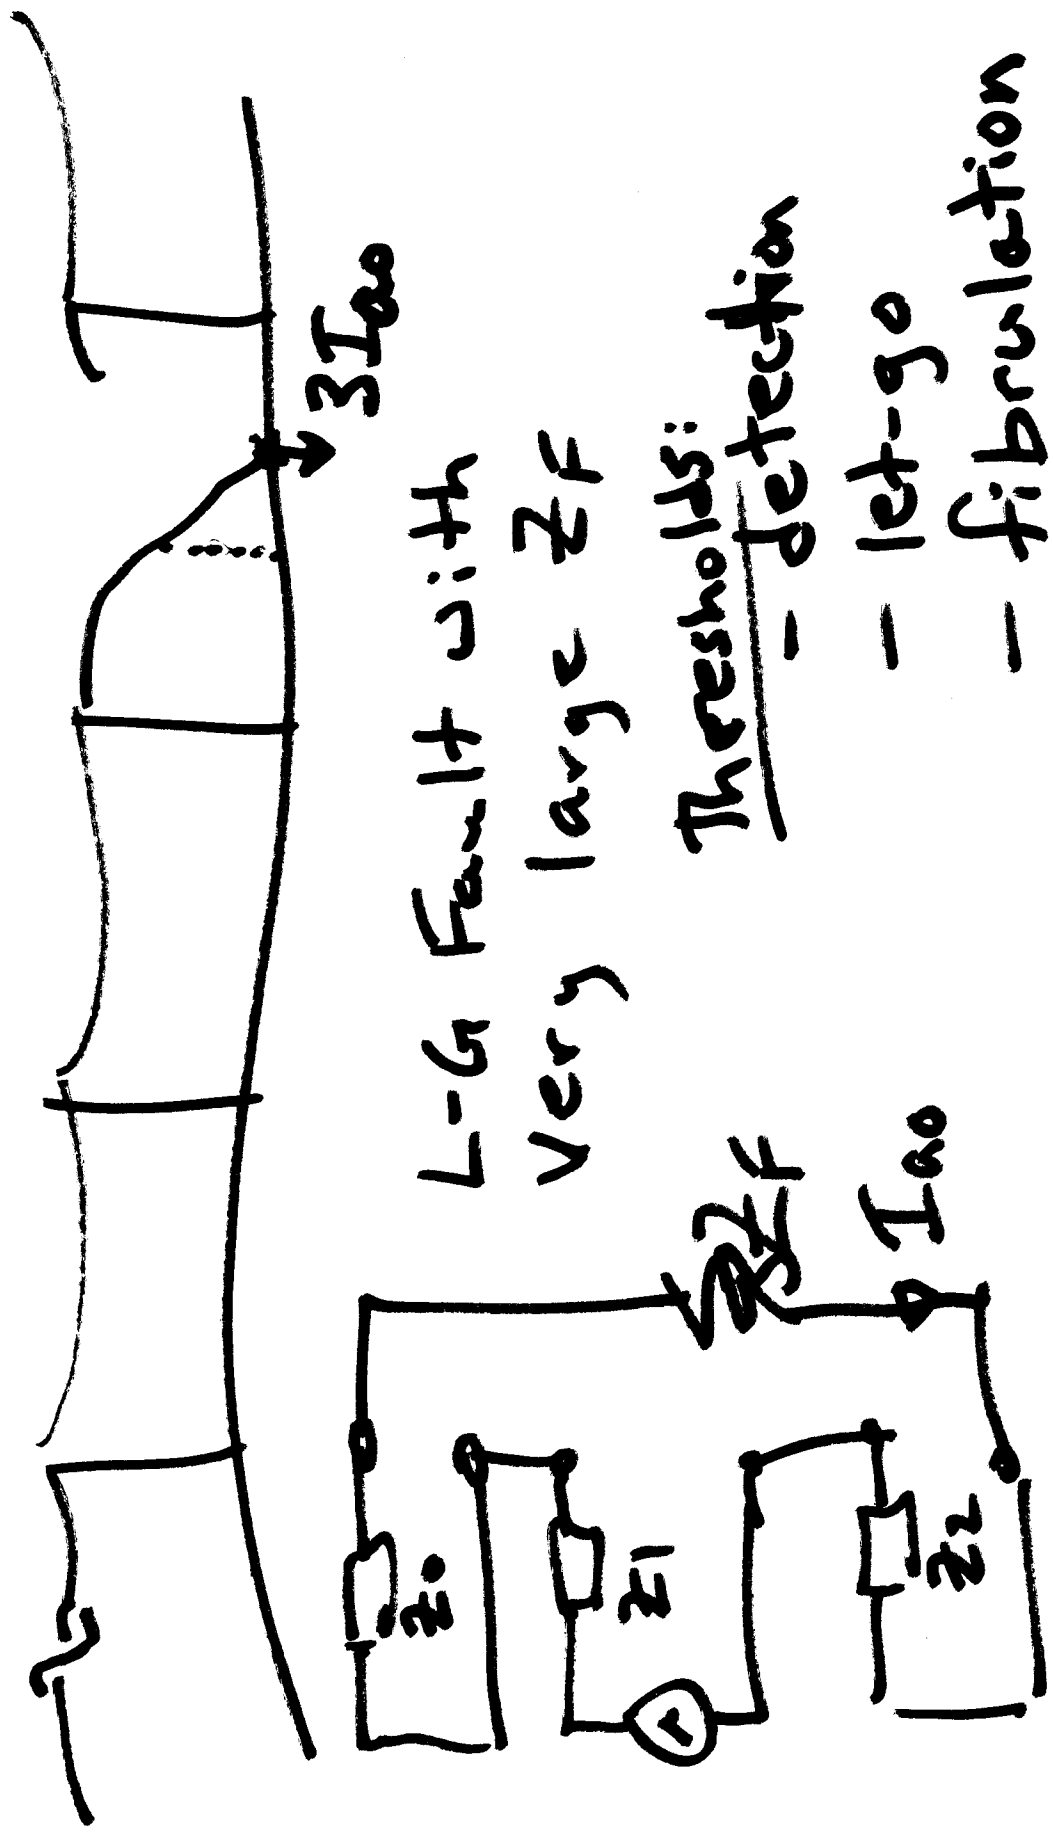 3Iao
L-G Fault with
very large ZF
Thresholds:
- detection
- let-go
- fibrulation
Z0
Z1
Z2
ZF
Iao